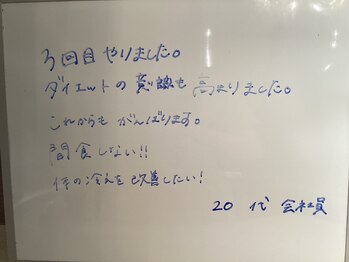 3回目やりました。
ダイエットの意識も高まりました。
これからもがんばります。
間食しない!!
体の冷えを改善したい!
20代 会社員